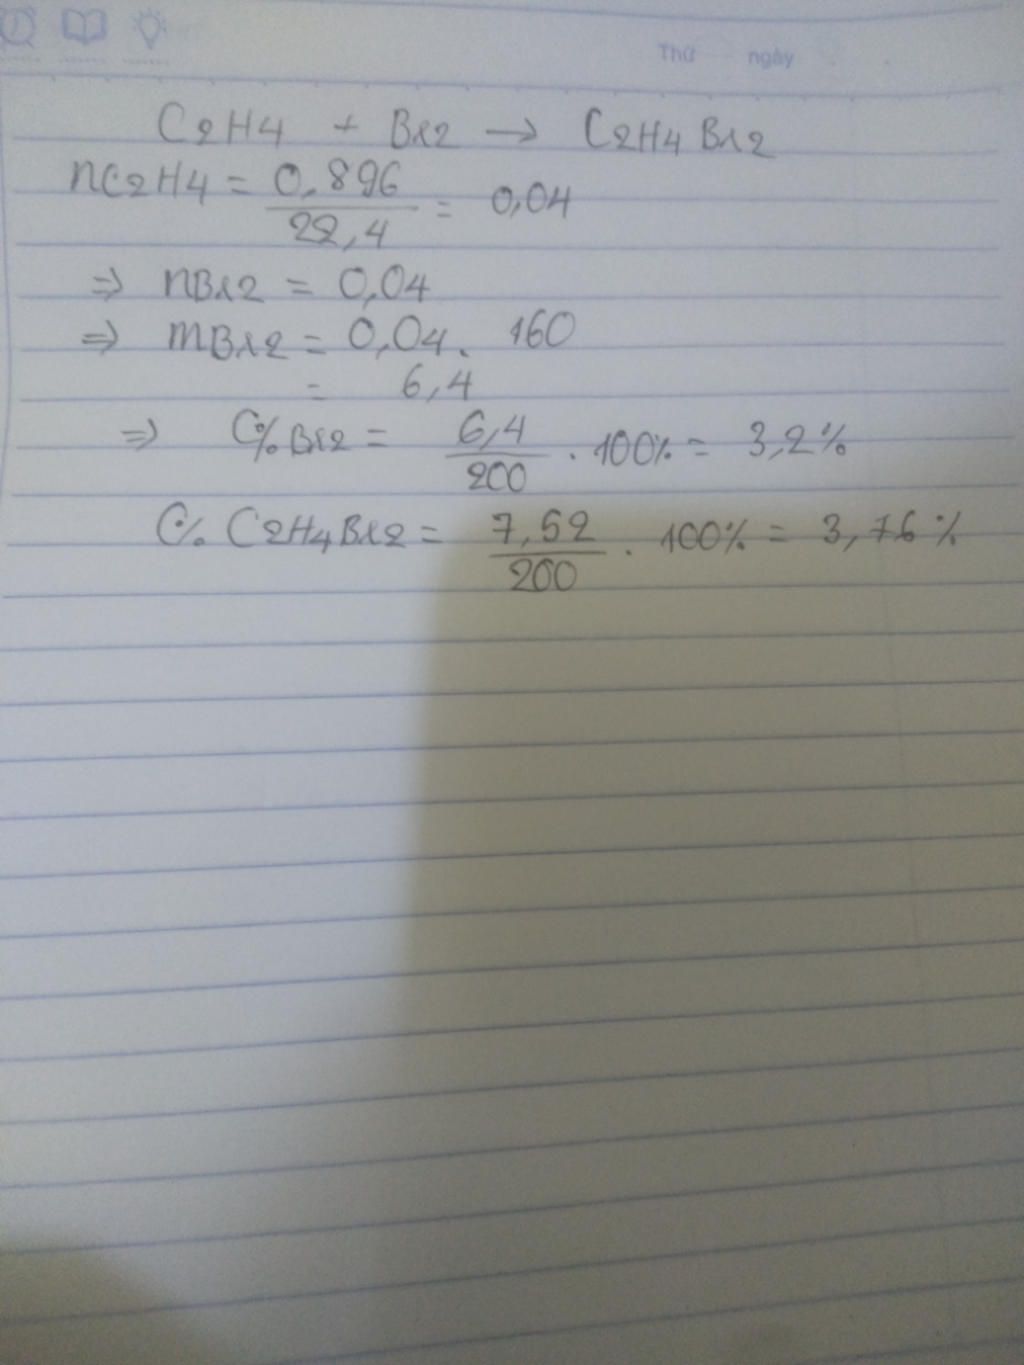 Thứ ngày
C2H4 + Br2 → C2H4Br2
nC2H4 = 0,896 / 22,4 = 0,04
⇒ nBr2 = 0,04
⇒ mBr2 = 0,04 . 160
= 6,4
⇒ C%Br2 = 6,4 / 200 . 100% = 3,2%
C% C2H4Br2 = 7,52 / 200 . 100% = 3,76%